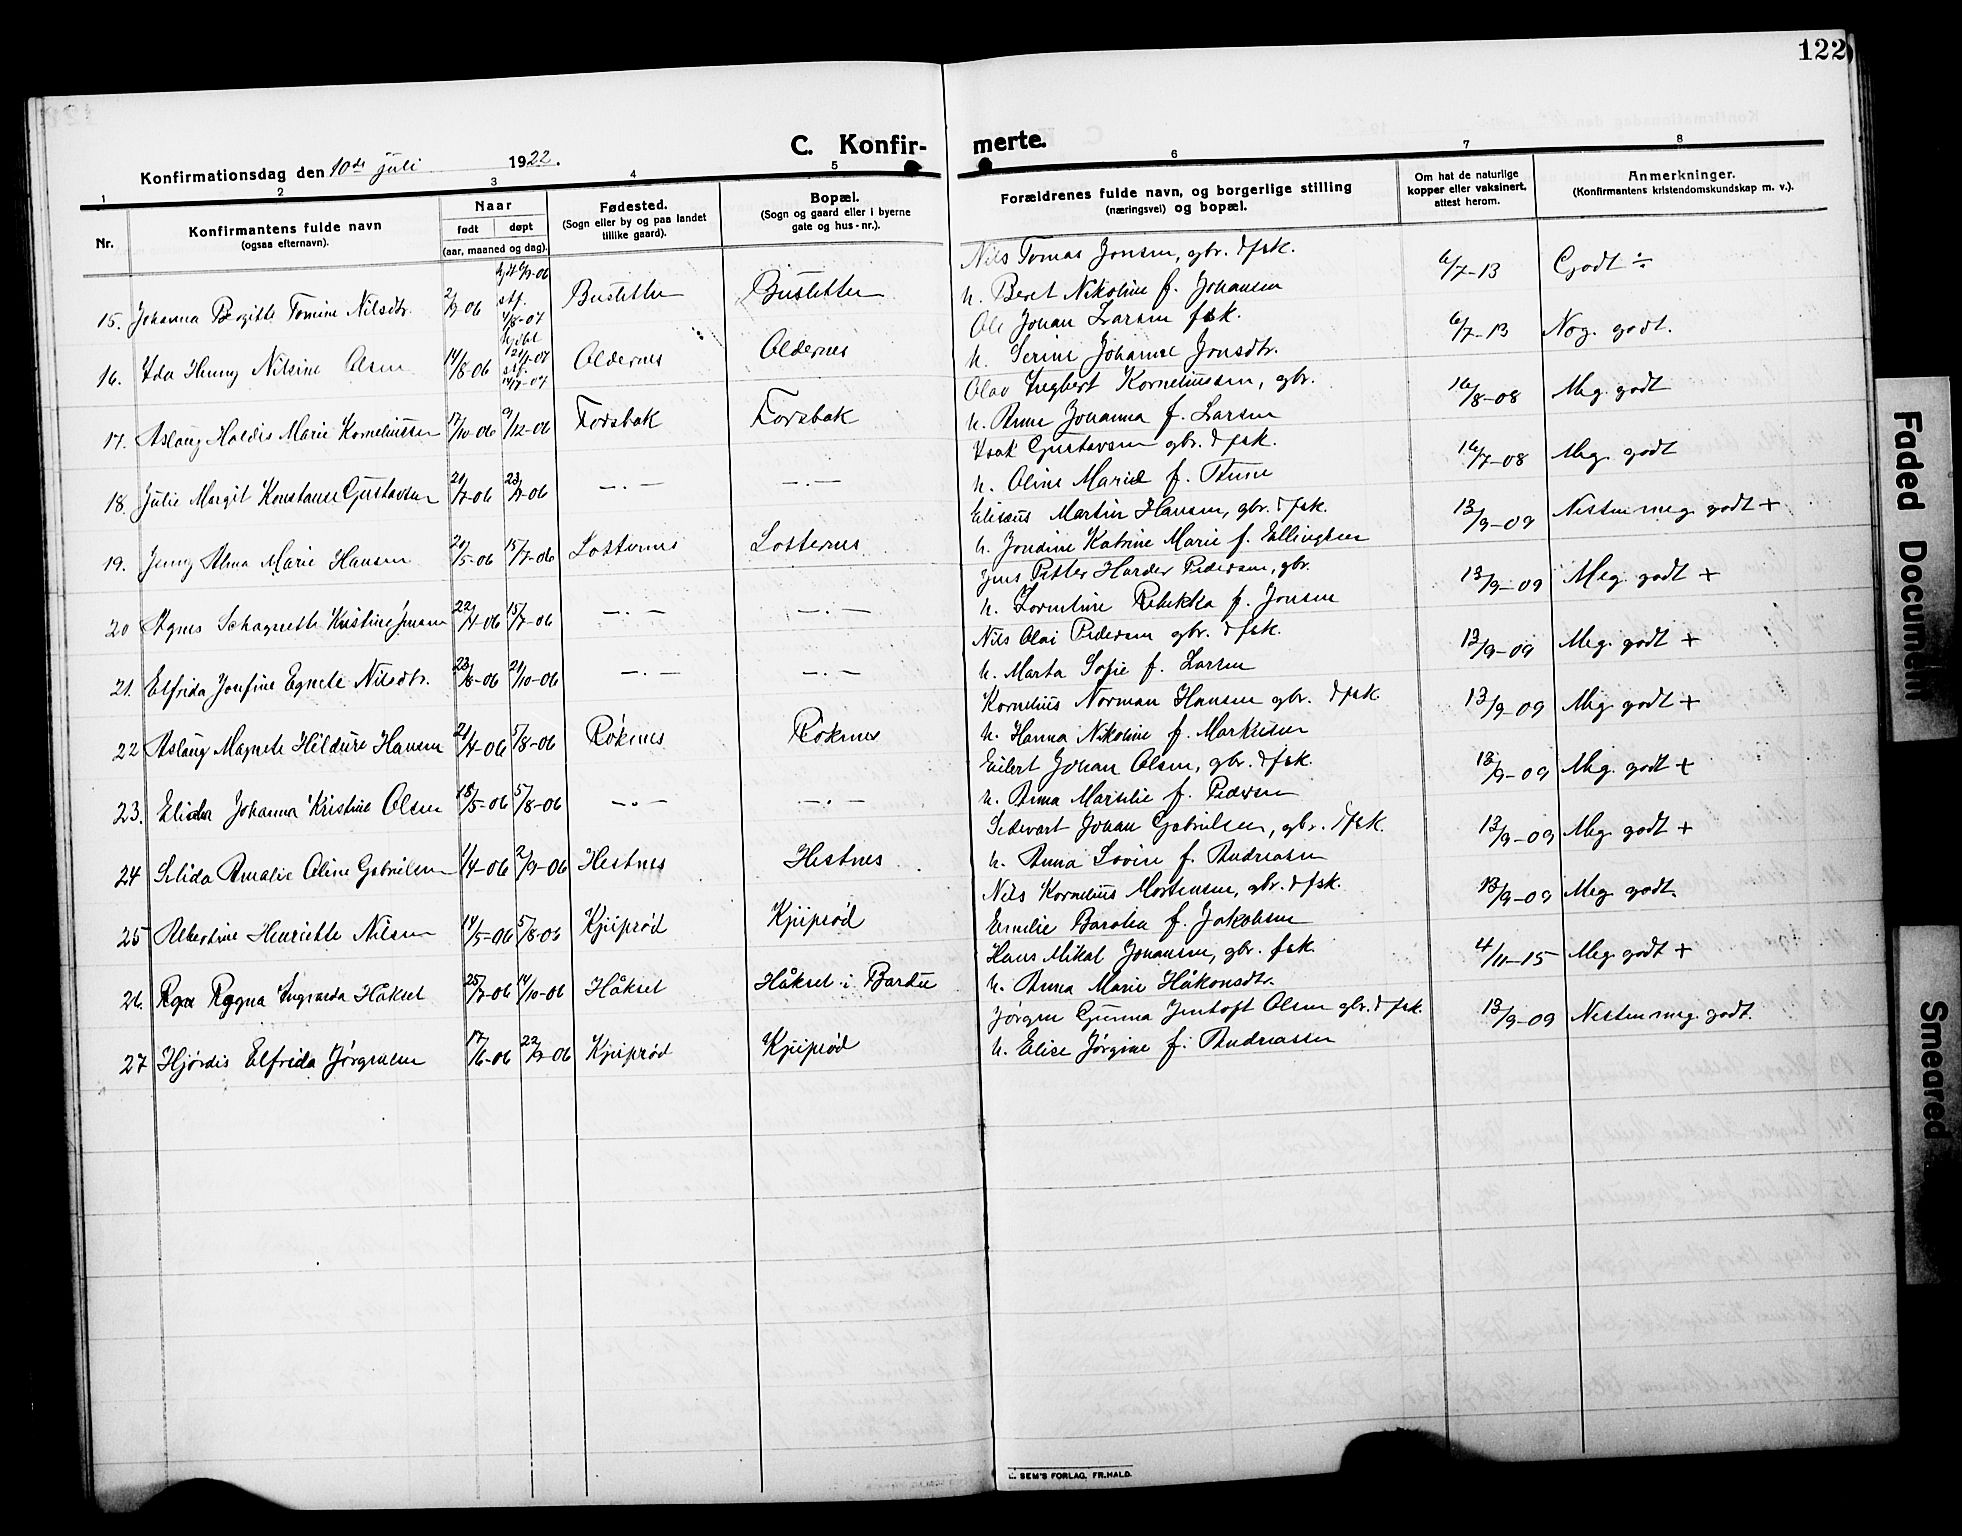 122
C. Konfir-
merte.
Konfirmationsdag den 10de juli 1922.
1 2 3 4 5 6 7 8
Nr.
Konfirmantens fulde navn
(ogsaa efternavn).
Naar
født døpt
(aar, maaned og dag).
Fødested.
(Sogn eller by og paa landet
tillike gaard).
Bopæl.
(Sogn og gaard eller i byerne
gate og hus-nr.).
Forældrenes fulde navn, og borgerlige stilling
(næringsvei) og bopæl.
Om hat de naturlige
kopper eller vaksinert,
attest herom.
Anmerkninger.
(Konfirmantens kristendomskundskap m. v.).
Nils Tomas Jonsen, gbr. & fsk.
15. Johanna Birgitte Tomine Nilsdtr. 2/7-06 stf. 4/8-07 h. Beret Nikoline f. Johansen 6/7-13 Godt ÷
Ole Johan Larsen fsk.
16. Ida Henny Nilsine Olsen 14/8-06 Oldernes Oldernes h. Serine Johanne Jonsdtr. 6/7-13 Nog. godt.
Olav Ingbert Korneliussen, gbr.
17. Aslaug Haldis Marie Korneliussen 17/10-06 9/12-06 Forsbak Forsbak h. Anne Johanna f. Larsen 16/8-08 Meg. godt
Isak Gustavsen gbr. & fsk.
18. Julie Margit Konstanse Gustavsen 21/7-06 23/9-06 —.— —.— h. Oline Marie f. 16/7-08 Meg. godt
Eliseus Martin Hansen, gbr. & fsk.
19. Jenny Alma Marie Hansen 20/5-06 15/7-06 h. Jondine Katrine Marie f. Ellingsen 13/9-09 Nesten meg. godt +
Jens Petter Harder Pedersen, gbr.
20 Agnes Kristine Jensen 22/4-06 15/7-06 —.— —.— h. Rebekka f. Jonsen 13/9-09 Meg. godt +
Nils Olai Pedersen gbr. & fsk.
21. Elfrida Josefine Egnete Nilsdtr. 23/8-06 21/10-06 —.— —.— h. Marta Sofie f. Larsen 13/9-09 Meg. godt +
Kornelius Norman Hansen gbr. & fsk.
22 Aslaug Magnete Hildure Hansen 21/4-06 5/8-06 Røknes Røknes h. Hanna Nikoline f. Markussen 13/9-09 Meg. godt +
Eilert Johan Olsen, gbr. & fsk.
23. Elida Johanna Kristine Olsen 18/5-06 5/8-06 —.— —.— h. Anna Marselie f. Pedersen 13/9-09 Meg. godt +
Sedevart Johan Gabrielsen, gbr. & fsk.
24 Selida Amalie Oline Gabrielsen 1/4-06 2/9-06 Hestnes Hestnes h. Anna Lovise f. Andreassen 13/9-09 Meg. godt +
Nils Kornelius Mortensen, gbr. & fsk.
25 Albertine Henriette Nilsen 14/5-06 5/8-06 Kjeiprød Kjeiprød Emilie Barolia f. Jakobsen 13/9-09 Meg. godt.
Hans Mikal Johansen, gbr. fsk.
26. Ragna Ingvarda Håkset 25/7-06 14/10-06 Håkset Håkset i Bardu h. Anna Marie Håkonsdtr. 4/11-15 Meg. godt +
Jørgen Gunna Jentoft Olsen gbr. & fsk.
27 Hjørdis Elfrida Jørgensen 17/6-06 22/7-06 Kjeiprød Kjeiprød h. Elise Jørgine f. Andreassen 13/9-09 Nesten meg. godt.
SEM'S FORLAG, FR.HALD.
Faded Document
Smeared